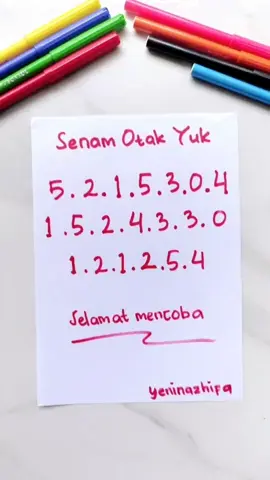 Senam Otak Yuk
5.2.1.5.3.0.4
1.5.2.4.3.3.0
1.2.1.2.5.4
Selamat mencoba
yeninazhifa